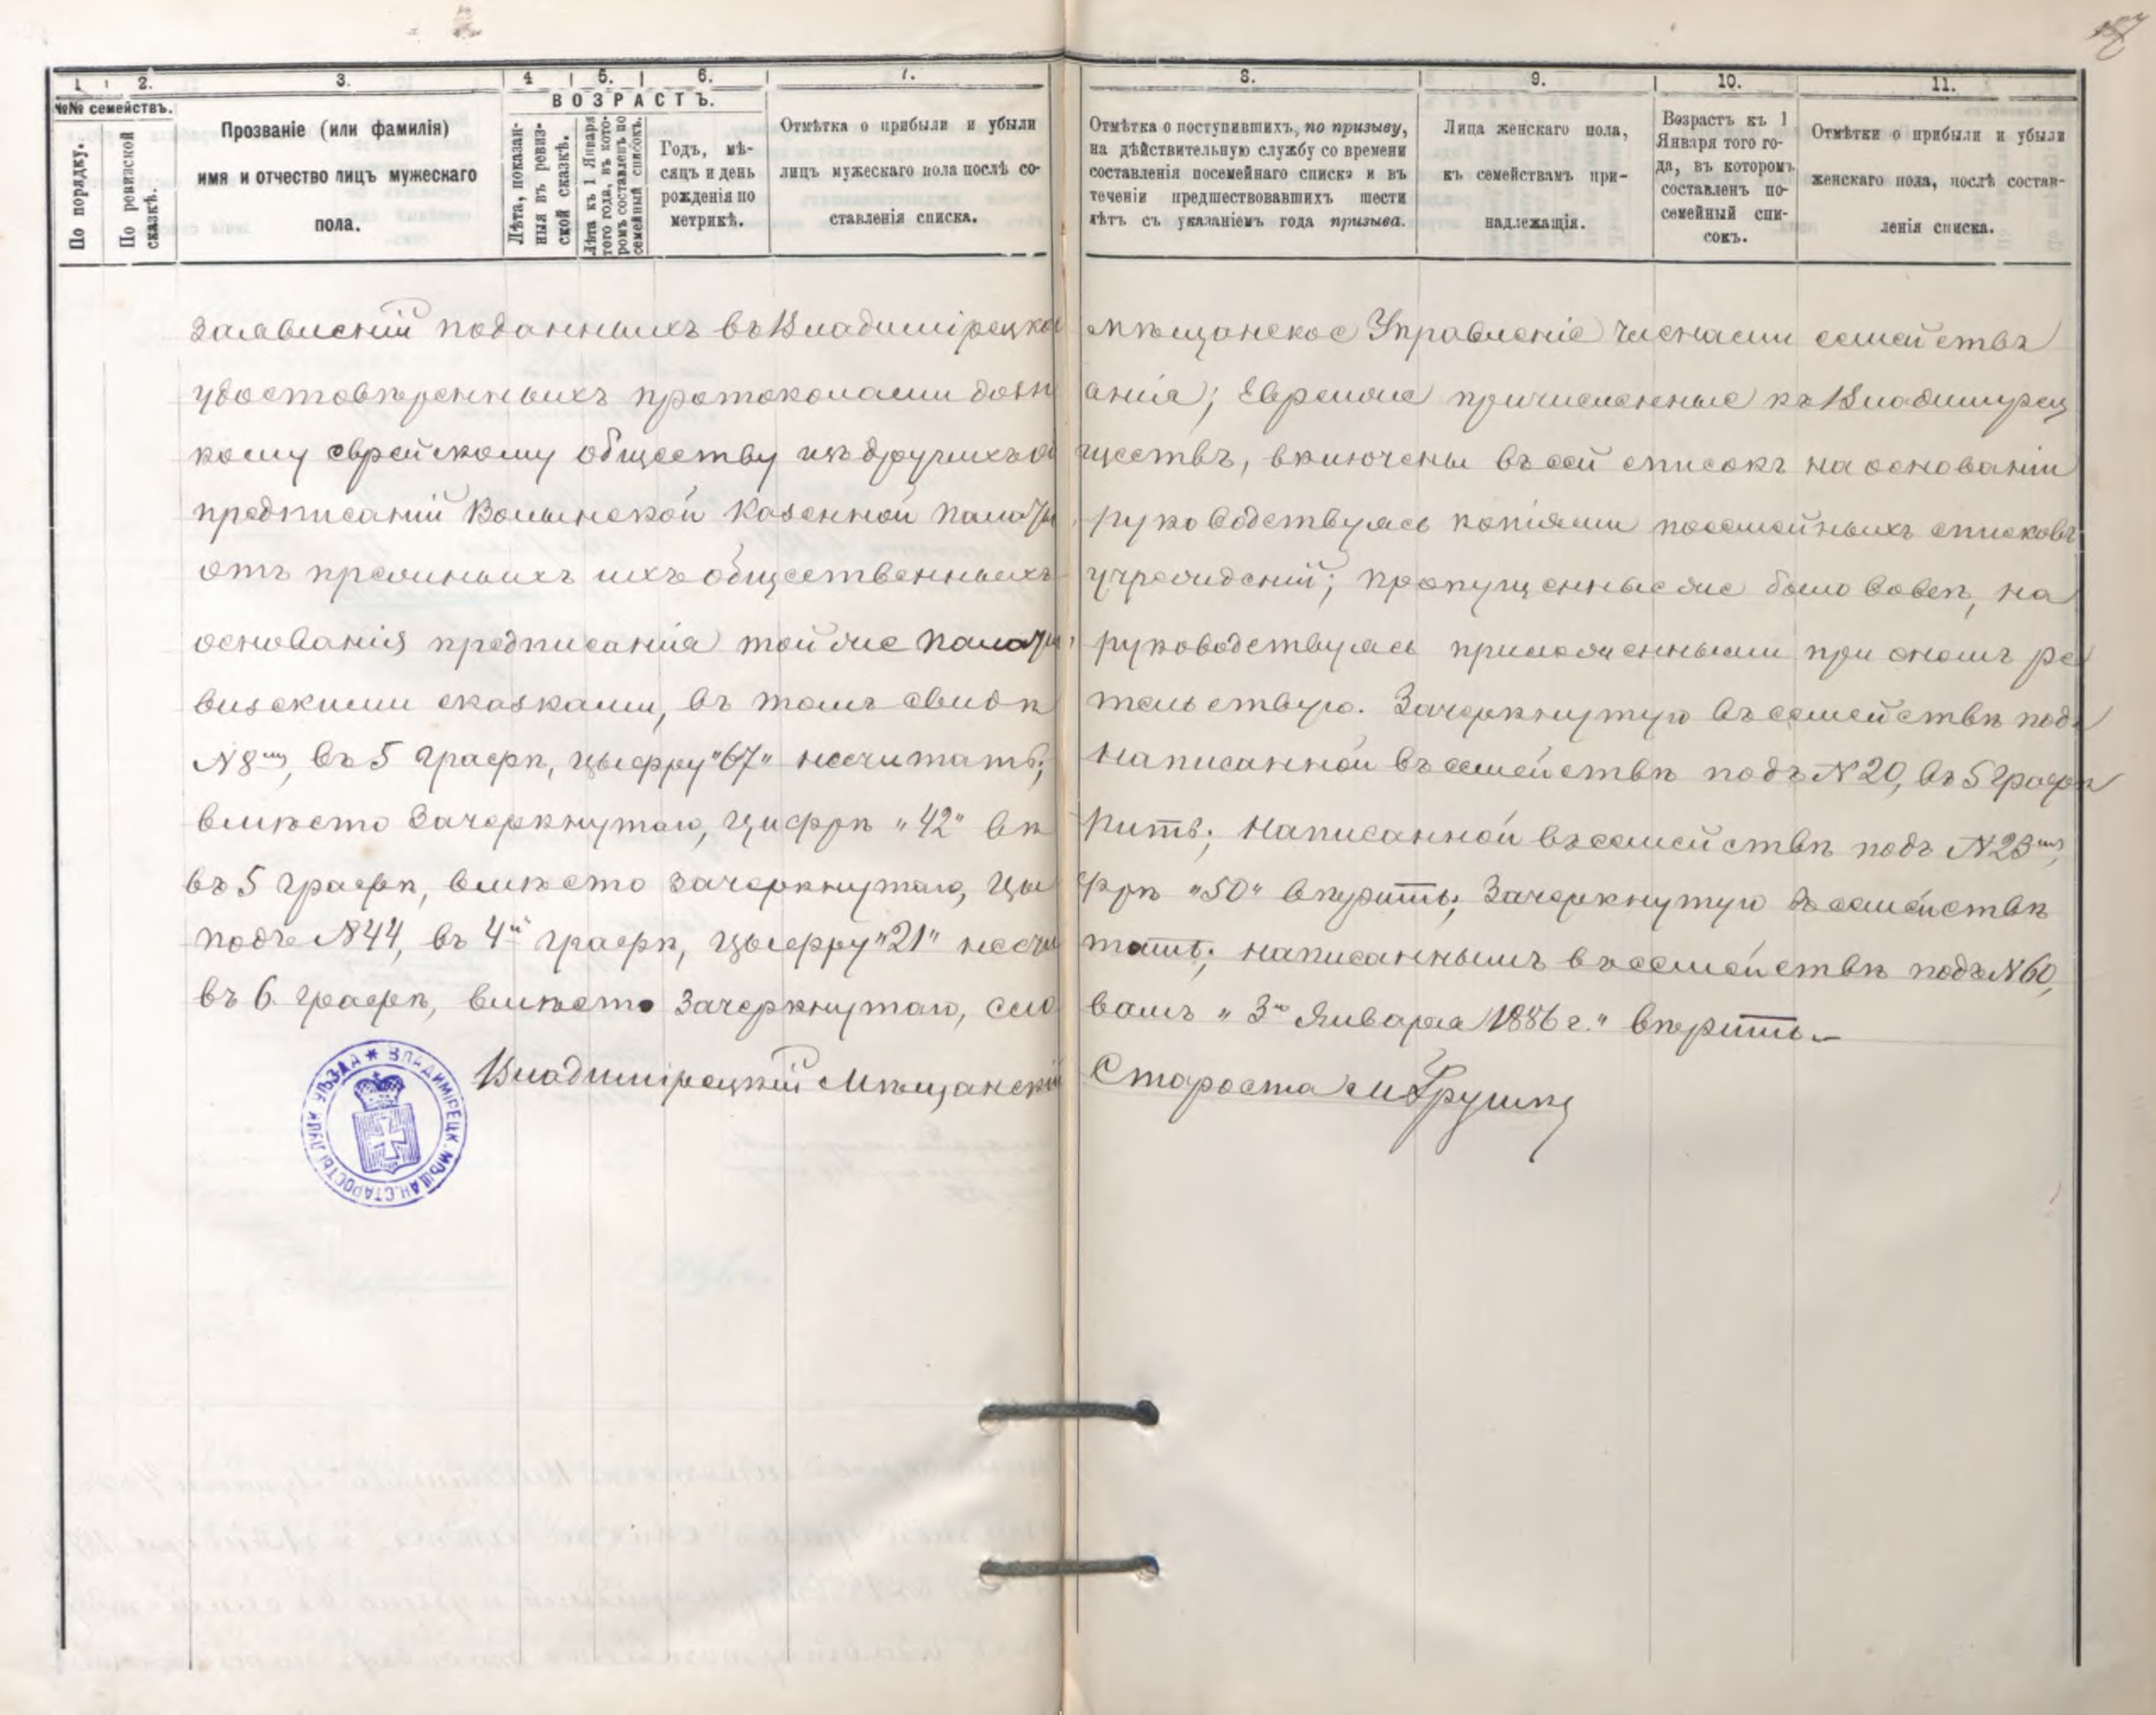 1. 2. 3. 4 5. 6. 7. 8. 9. 10. 11.
№№ семействъ.
По порядку.
По ревизской сказкѣ.
Прозваніе (или фамилія)
имя и отчество лицъ мужескаго
пола.
ВОЗРАСТЪ.
Лѣта, показан-
ныя въ ревиз-
ской сказкѣ.
Лѣта къ 1 Января
того года, въ кото-
ромъ составленъ по
семейный списокъ.
Годъ, мѣ-
сяцъ и день
рожденія по
метрикѣ.
Отмѣтка о прибыли и убыли
лицъ мужескаго пола послѣ со-
ставленія списка.
Отмѣтка о поступившихъ, по призыву,
на дѣйствительную службу со времени
составленія посемейнаго списка и въ
теченіи предшествовавшихъ шести
лѣтъ съ указаніемъ года призыва.
Лица женскаго пола,
къ семействамъ при-
надлежащія.
Возрастъ къ 1
Января того го-
да, въ которомъ
составленъ по-
семейный спи-
сокъ.
Отмѣтки о прибыли и убыли
женскаго пола, послѣ состав-
ленія списка.
заявленій поданныхъ въ Владимірецкое мѣщанское Управленіе членами семействъ
удостовѣренныхъ протоколами дознанія; Евреи же причисленные къ Владимирец
кому еврейскому обществу изъ другихъ обществъ, включены въ сей списокъ на основаніи
предписаній Волынской Казенной Палаты, руководствуясь копіями посемейныхъ списковъ
отъ прежнихъ ихъ общественныхъ учрежденій; пропущенные же было вовсе, на
основанія предписанія той же Палаты, руководствуясь приложенными при ономъ ре
визскими сказками, въ томъ свидѣтельствую. Зачеркнутую въ семействѣ подъ
№ 8мъ, въ 5 графѣ, цыфру "67" несчитать; Написанной въ семействѣ подъ № 20, въ 5 графѣ
вмѣсто зачеркнутаго, цифрѣ "42" вѣрить; Написанной въ семействѣ подъ № 23мъ,
въ 5 графѣ, вмѣсто зачеркнутаго, цыфрѣ "50" вѣрить; Зачеркнутую въ семействѣ
подъ № 44, въ 4й графѣ, цыфру "21" несчитать; написаннымъ въ семействѣ подъ № 60,
въ 6 графѣ, вмѣсто зачеркнутаго, словамъ "3го Января 1886 г." вѣрить.–
Владимірецкій Мѣщанскій Староста
* ВЛАДИМІРЕЦК. МѢЩАН. СТАРОСТЫ УѢЗДА